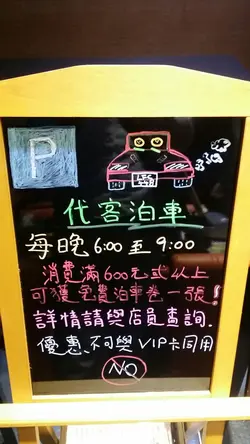 P
代客泊車
每晚 6:00 至 9:00
消費滿600元或以上
可獲免費泊車卷一張!
詳情請與店員查詢.
優惠不可與VIP卡同用
NO